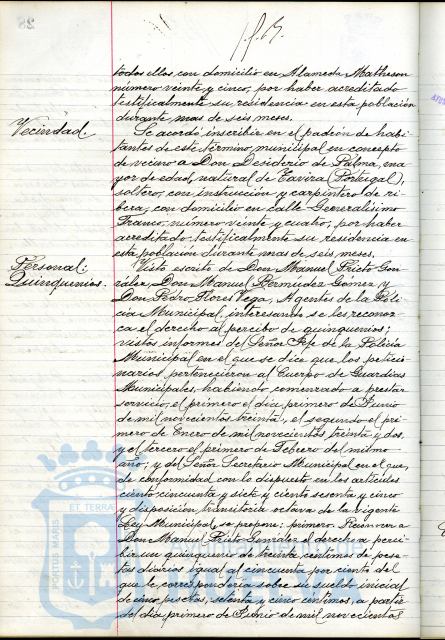 todos ellos con domicilio en Alameda Matheson
número veinte y cinco, por haber acreditado
testificalmente su residencia en esta población
durante mas de seis meses.
Vecindad.
Se acordó inscribir en el padrón de habi-
tantes de este término municipal en concepto
de vecino a Don Desiderio de Palma, ma
yor de edad, natural de Tavira (Portugal),
soltero, con instrucción y carpintero de ri-
bera, con domicilio en calle Generalísimo
Franco, número veinte y cuatro, por haber
acreditado testificalmente su residencia en
esta población durante mas de seis meses.
Personal:
Quinquenios.
Visto escrito de Don Manuel Prieto Gon
zález, Don Manuel Bermudez Gomez y
Don Pedro Flores Vega, Agentes de la Poli
cia Municipal interesando se les reconoz
ca el derecho al percibo de quinquenios;
vistos informes del Señor Jefe de la Policia
Municipal en el que se dice que los peticio
narios pertenecieron al Cuerpo de Guardias
Municipales, habiendo comenzado a prestar
servicio, el primero el dia primero de Junio
de mil novecientos treinta, el segundo el pri
mero de Enero de mil novecientos treinta y dos,
y el tercero el primero de Febrero del mismo
año; y del Señor Secretario Municipal en el que,
de conformidad con lo dispuesto en los artículos
ciento cincuenta y siete y ciento sesenta y cinco
y disposición transitoria octava de la vigente
Ley Municipal, se propone: primero. Reconocer a
Don Manuel Prieto González el derecho a perci-
bir un quinquenio de treinta centimos de pese-
tas diarios igual al cincuenta por ciento del
que le correspondería sobre su sueldo inicial
de cinco pesetas, setenta y cinco centimos, a partir
del dia primero de Junio de mil novecientos
PORTUS MARIS
ET TERRA